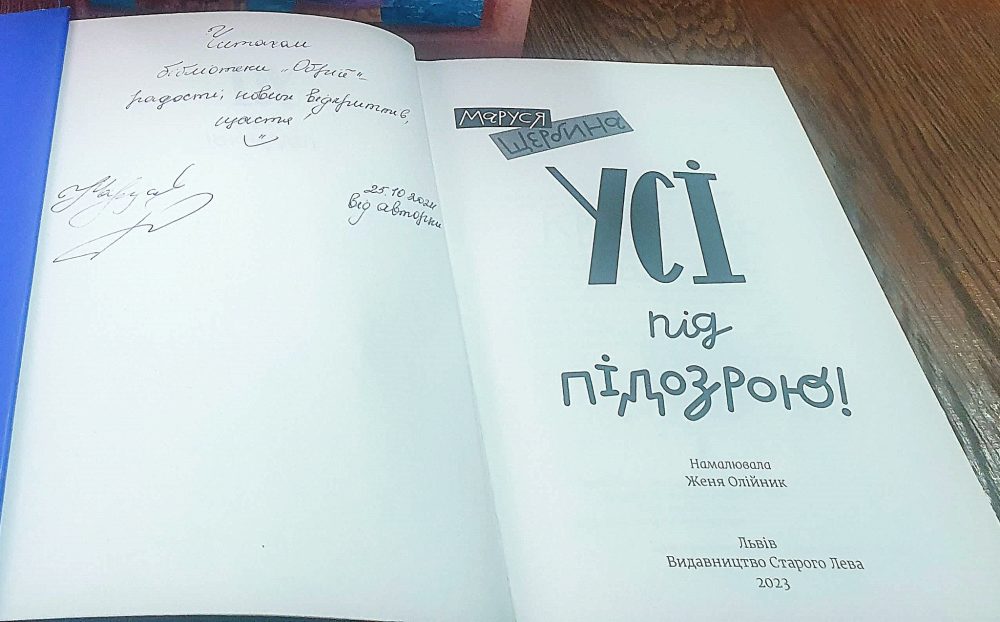 Читачам
бібліотеки „Обрій"
радості, нових відкриттів,
щастя!
Маруся
25.10.2024
від авторки
Маруся
Щербина
Усі
під
підозрою!
Намалювала
Женя Олійник
Львів
Видавництво Старого Лева
2023